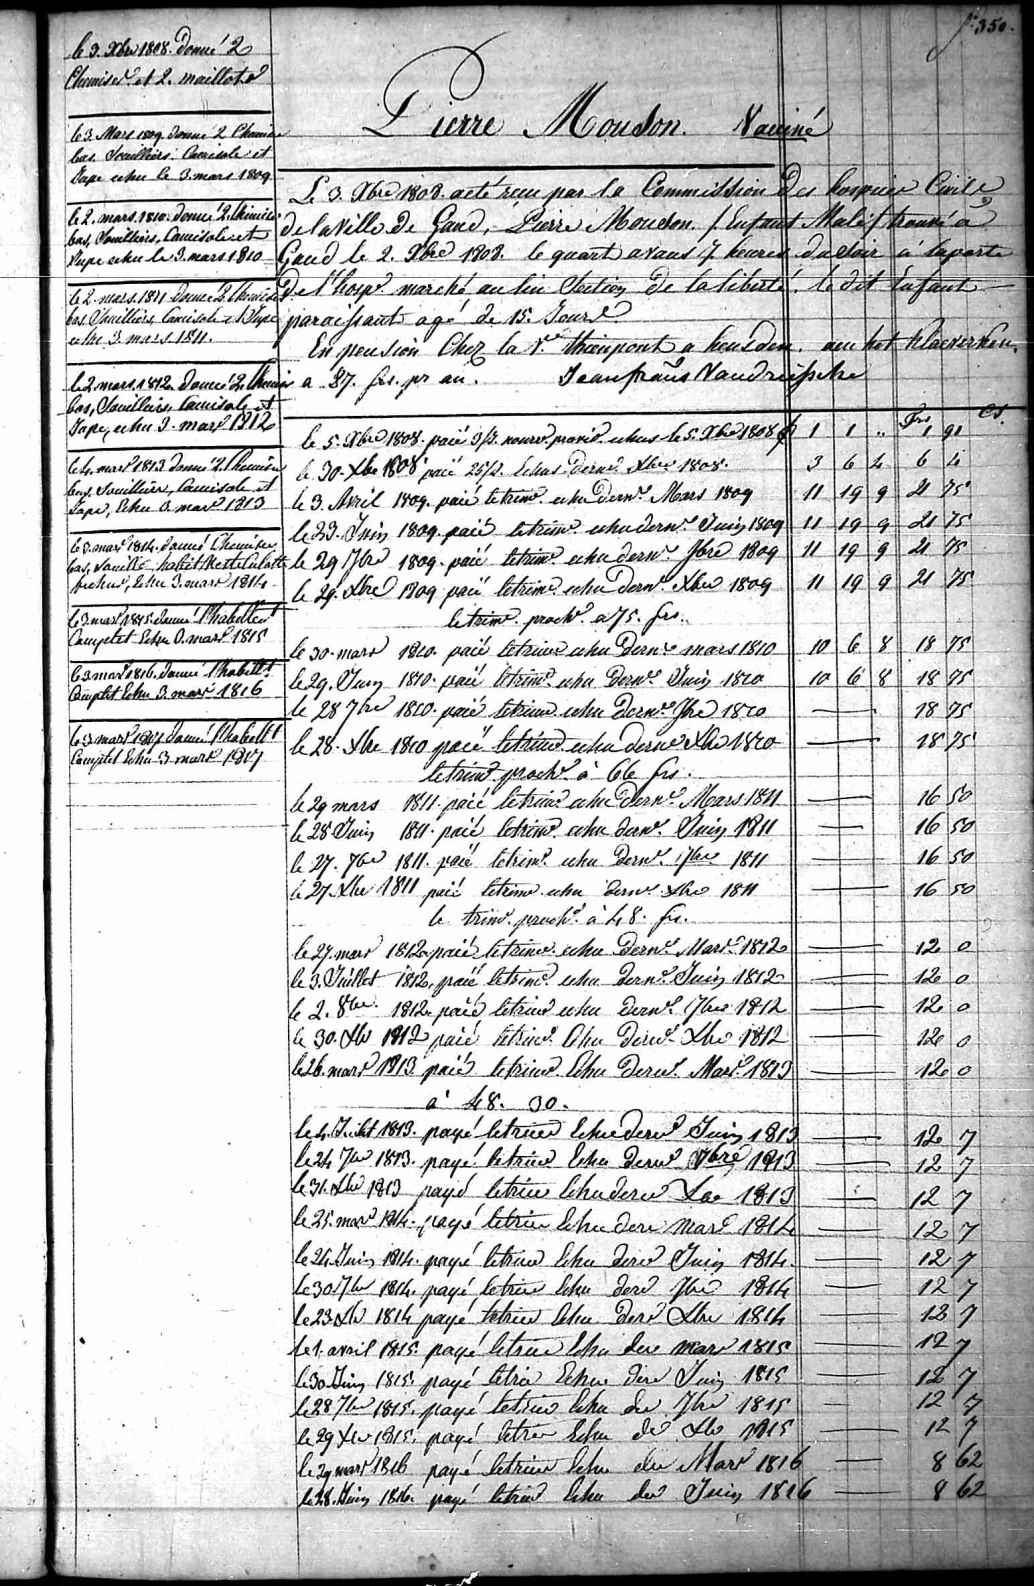 f° 350.
le 3. Xbre 1808. Donné 2
Chemises et 2. maillots
le 3. Mars 1809. donné 2 Chemises
bas, Souilliers, Camisole et
Jupe echu le 3. mars 1809
le 2. mars. 1810. donné 2. Chemises
bas, Souilliers, Camisole et
Jupe echu le 3. mars 1810
le 2. mars. 1811 donné 2. Chemises
bas Souilliers, Camisole et Jupe
echu 3. mars 1811.
le 2 mars. 1812 donné 2. Chemises
bas, Souilliers, Camisole et
Jupe, echu 3. mars 1812
le 4. mars 1813 donné 2. Chemises
bas, Souilliers, Camisole et
Jupe, Echu 3. mars 1813
le 3. mars 1814. donné Chemises
bas, Souillié habit
Echu 3. mars 1814
le 3. mars 1815. donné l'habillemt
Complet Echu 3. mars 1815
le 3 mars 1816. donné l'habillt
Complet Echu 3. mars 1816
le 3 mars 1817 donné l'habillt
Complet Echu 3 mars 1817
Pierre Mouson. Vacciné
Le 3. Xbre 1808. acté reçu par la Commission Des hospices Civils
de la Ville de Gand, Pierre Mouson. / Enfant Male / trouvé à
Gand le 2. Xbre 1808. le quart avant 7. heures du Soir à la porte
De l'hosp. marché au lin Section De la liberté. le dit Enfant
paroissant agé de 15. Jours.
En pension Chez la Ve Thienpont a heusden. au hot Klaeverken.
a 87. frs. pr an. Jean françs Vandreissche
Frs. Cs.
le 5. Xbre 1808. paié echus le 5. Xbre 1808 1 1 .. 1 91
le 30. Xbre 1808. paié Echus Derne Xbre 1808. 3 6 4 6 4
le 3. Avril 1809. paié le trime echu Derne Mars 1809 11 19 9 21 75
le 23. Juin 1809. paié le trime echu derne Juin 1809 11 19 9 21 75
le 29 7bre 1809. paié le trime echu derne 7bre 1809 11 19 9 21 75
le 29. Xbre 1809 paié le trime echu derne Xbre 1809 11 19 9 21 75
le trim. proch. a 75. frs.
le 30. mars 1810. paié le trime echu Derne mars 1810 10 6 8 18 75
le 29. Juin 1810. paié le trime echu Derne Juin 1810 10 6 8 18 75
le 28 7bre 1810. paié le trime echu Derne 7bre 1810 18 75
le 28. Xbre 1810 paié le trime echu derne Xbre 1810 18 75
le trim. proch. à 66 frs.
le 29 mars 1811. paié le trime echu dern. Mars 1811 16 50
le 28 Juin 1811. paié le trime echu dern. Juin 1811 16 50
le 27. 7bre 1811. paié le trime echu Dern. 7bre 1811 16 50
le 27. Xbre 1811 paié le trime echu derne Xbre 1811 16 50
le trim. proch. à 48. frs.
le 27. mars 1812 paié le trime echu Dern. Mars. 1812 12 0
le 3. Juillet 1812. paié le trime echu dern. Juin 1812 12 0
le 2. 8bre. 1812. paié le trime echu dern. 7bre 1812 12 0
le 30. Xbr 1812 paié le trime Echu Dern. Xbre 1812 12 0
le 26. mars 1813 paié le trime Echu Dern. Mars. 1813 12 0
à 48. 30.
le 4. Juilet 1813. payé le trime Echu dern Juin 1813 12 7
le 24 7bre 1813. payé le trime Echu Dern 7bre 1813 12 7
le 31. Xbr 1813 payé le trime Echu dern Xbe 1813 12 7
le 25. mars 1814. payé le trime Echu dern mars 1814 12 7
le 24. Juin 1814. payé le trime Echu dern Juin 1814. 12 7
le 30 7br 1814. payé le trime Echu dern 7bre 1814 12 7
le 23 Xbr 1814 payé le trime Echu Dern Xbre 1814 12 7
le 1. avril 1815. payé le trime Echu der mars 1815 12 7
le 30 Juin 1815. payé le trim Echu dern Juin 1815 12 7
le 28 7br 1815. payé le trime Echu der 7bre 1815 12 7
le 29 Xbr 1815. payé le trim Echu de Xbr 1815 12 7
le 29 mars 1816 payé le trime Echu der Mars 1816 8 62
le 28. Juin 1816. payé le trim Echu der Juin 1816 8 62